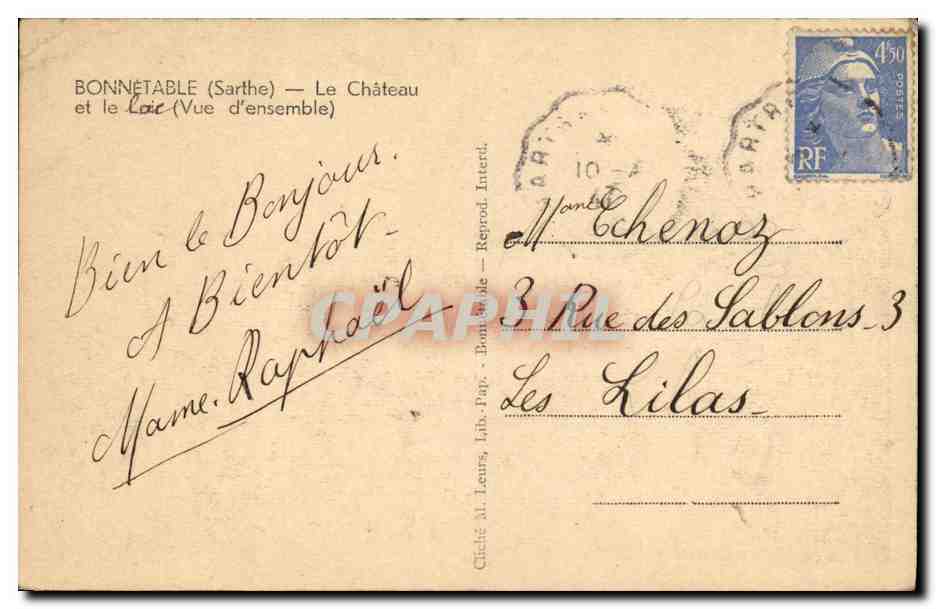 BONNÉTABLE (Sarthe) — Le Château
et le lac (Vue d'ensemble)
Bien le Bonjour.
A Bientôt-
Mame. Raphaël
Cliché M. Leurs, Lib.-Pap. - Bonnétable — Reprod. Interd.
4F50
POSTES
RF
10
Mame Tchenoz
3 Rue des Sablons_3
Les Lilas_
CPAPHIL